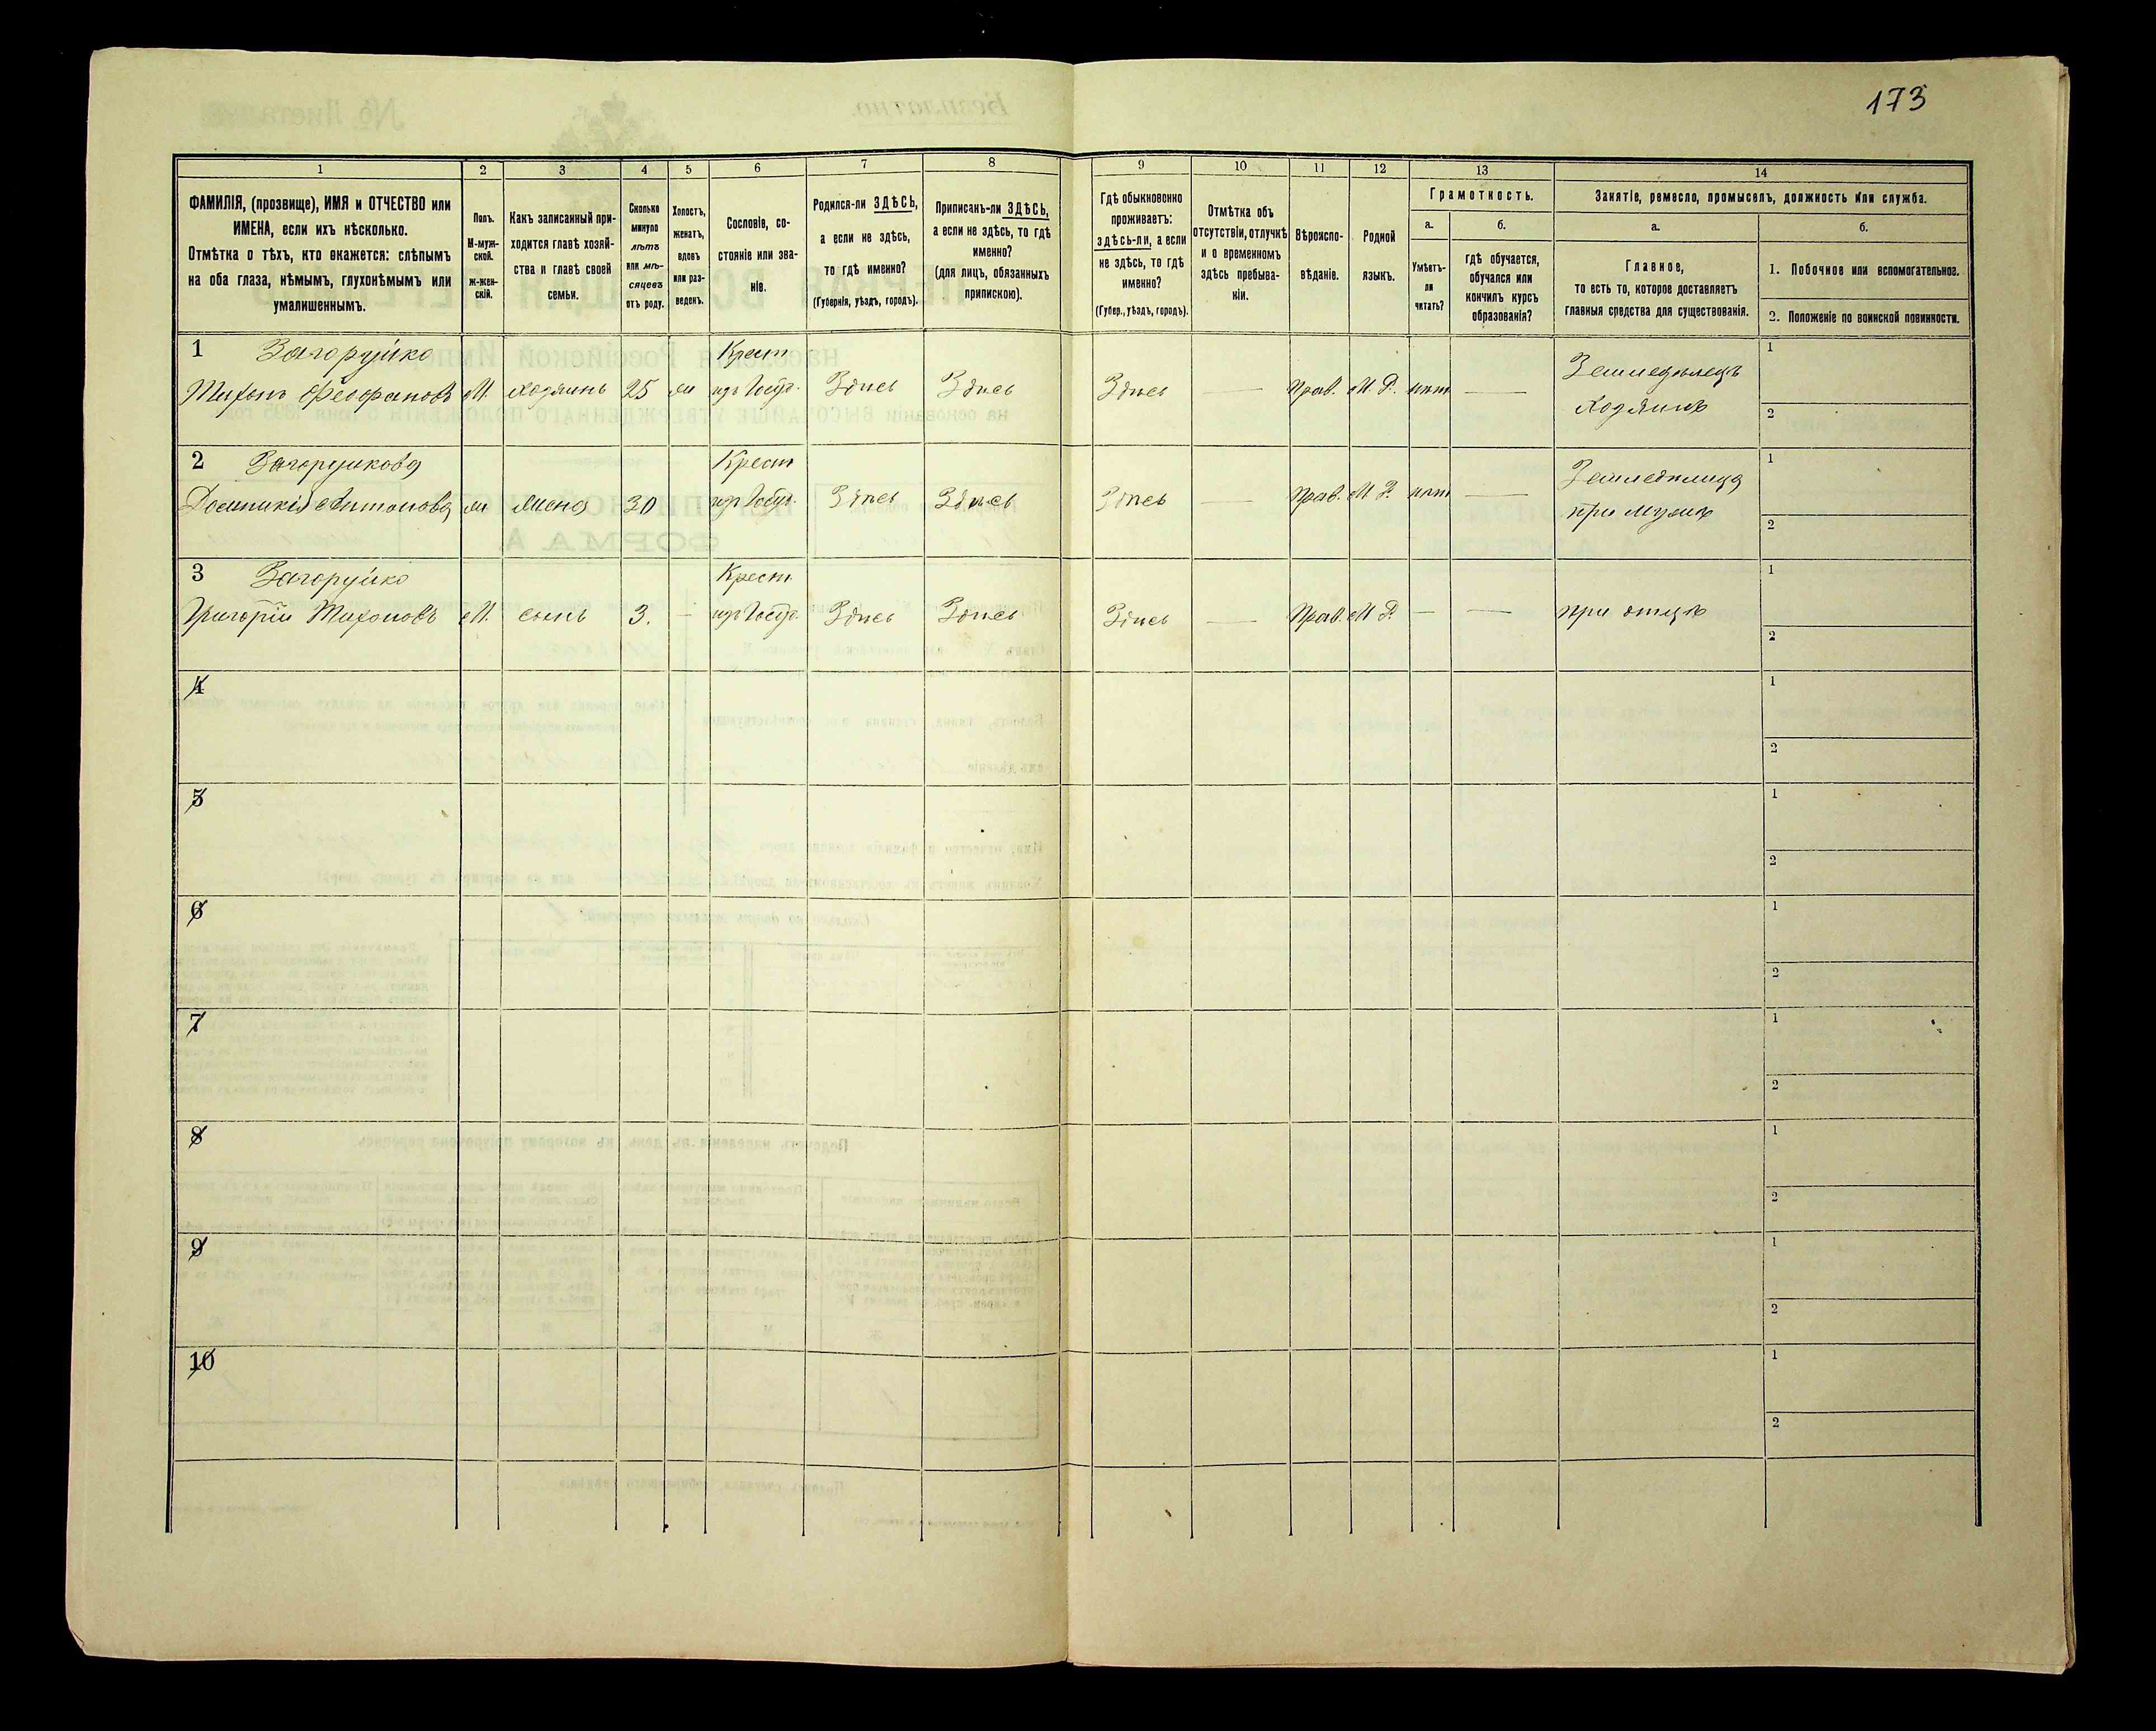 173
1 2 3 4 5 6 7 8 9 10 11 12 13 14
ФАМИЛІЯ, (прозвище), ИМЯ и ОТЧЕСТВО или
ИМЕНА, если ихъ нѣсколько.
Отмѣтка о тѣхъ, кто окажется: слѣпымъ
на оба глаза, нѣмымъ, глухонѣмымъ или
умалишеннымъ.
Полъ.
М-муж-
ской.
ж-жен-
скій.
Какъ записанный при-
ходится главѣ хозяй-
ства и главѣ своей
семьи.
Сколько
минуло
лѣтъ
или мѣ-
сяцевъ
отъ роду.
Холостъ,
женатъ,
вдовъ
или раз-
веденъ.
Сословіе, со-
стояніе или зва-
ніе.
Родился-ли ЗДѢСЬ,
а если не здѣсь,
то гдѣ именно?
(Губернія, уѣздъ, городъ).
Приписанъ-ли ЗДѢСЬ,
а если не здѣсь, то гдѣ
именно?
(для лицъ, обязанныхъ
припискою).
Гдѣ обыкновенно
проживаетъ:
здѣсь-ли, а если
не здѣсь, то гдѣ
именно?
(Губер., уѣздъ, городъ).
Отмѣтка объ
отсутствіи, отлучкѣ
и о временномъ
здѣсь пребыва-
ніи.
Вѣроиспо-
вѣданіе.
Родной
языкъ.
Грамотность.
а.
Умѣетъ-
ли
читать?
б.
гдѣ обучается,
обучался или
кончилъ курсъ
образованія?
Занятіе, ремесло, промыселъ, должность или служба.
а.
Главное,
то есть то, которое доставляетъ
главныя средства для существованія.
б.
1. Побочное или вспомогательное.
2. Положеніе по воинской повинности.
1 Загоруйко Крест 1
Тихонъ Феофановъ М. хозяинъ 25 ж изъ Госуд. Здѣсь Здѣсь Здѣсь — Прав. М. Р. нѣт — Земледѣлецъ
Хозяинъ 2
2 Загоруйкова Крест 1
Домникія Антонова ж жена 30 изъ Госуд. Здѣсь Здѣсь Здѣсь — Прав. М. Р. нѣт — Земледѣлица
при мужѣ 2
3 Загоруйко Крест. 1
Григорій Тихоновъ М. сынъ 3. — изъ Госуд. Здѣсь Здѣсь Здѣсь — Прав. М. Р. — — при отцѣ
2
4 1
2
5 1
2
6 1
2
7 1
2
8 1
2
9 1
2
10 1
2